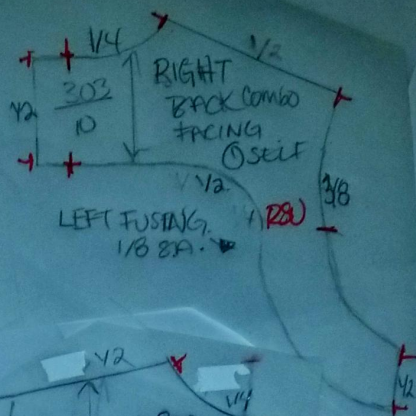 1/4
1/2
1/2
303
10
RIGHT
BACK COMBO
FACING
① SELF
1/2
3/8
RSU
LEFT FUSING
1/8 SA.
1/2
1/2
1/4